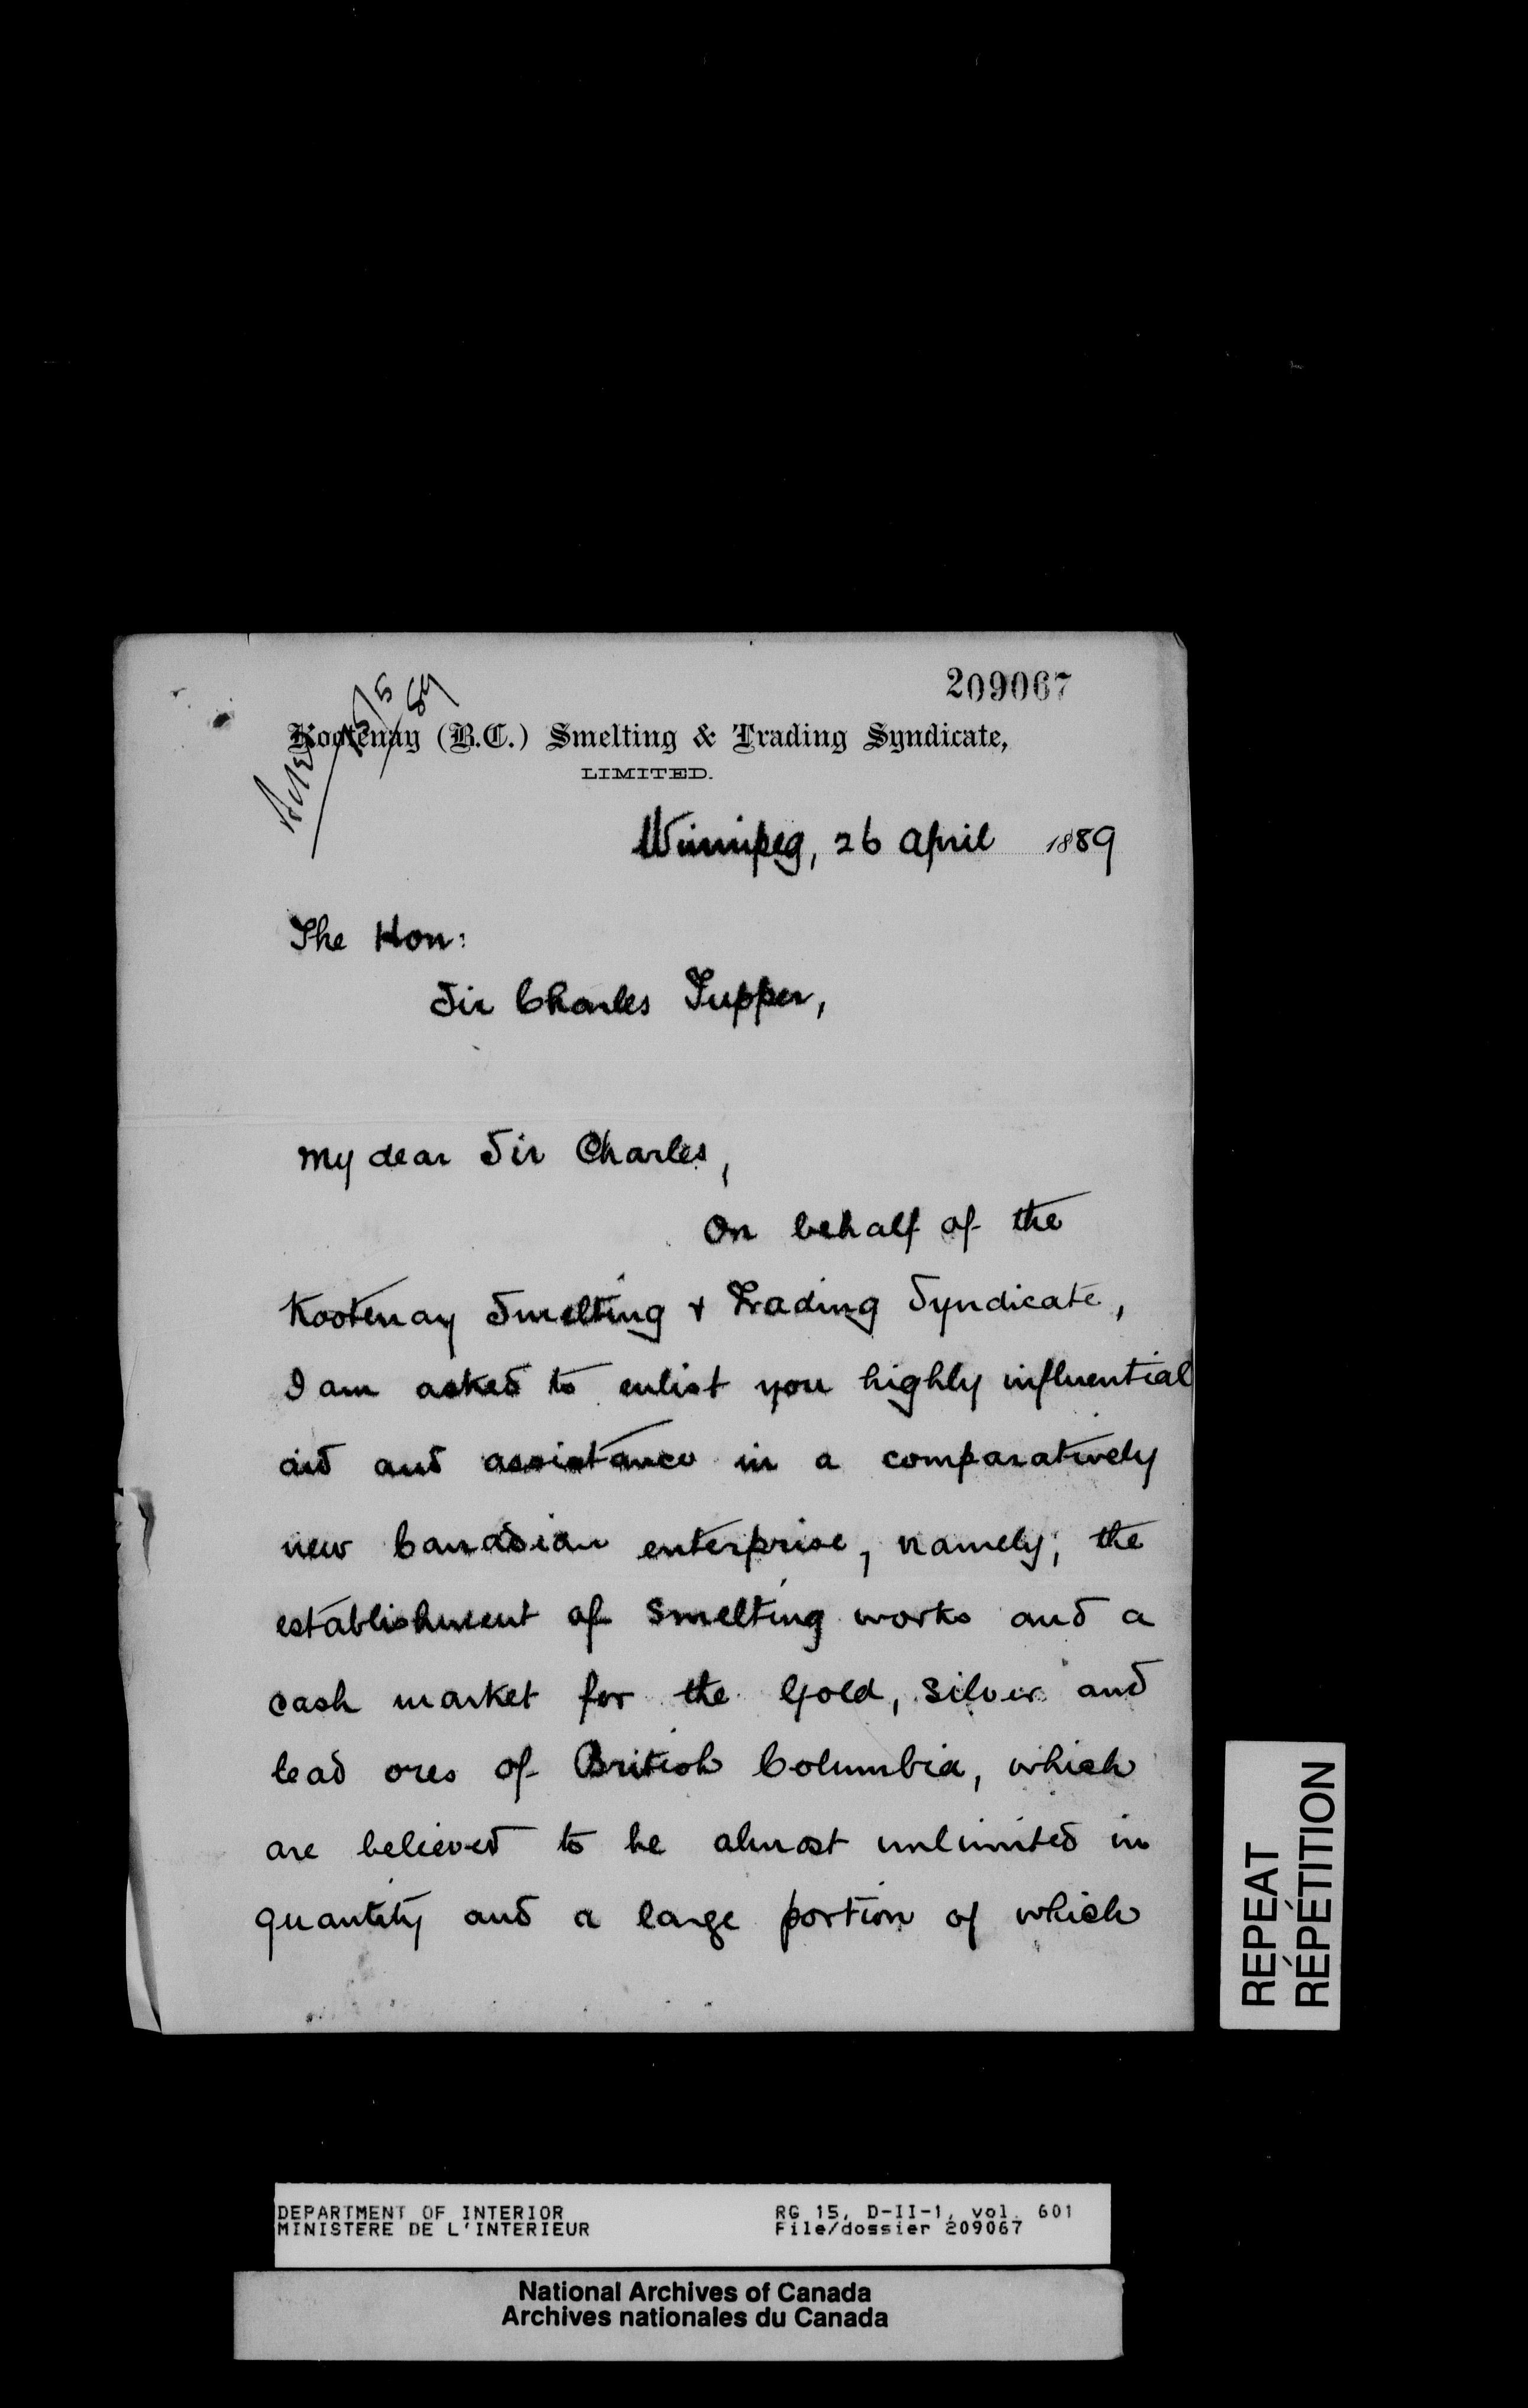 209067
Kootenay (B.C.) Smelting & Trading Syndicate,
LIMITED.
Winnipeg, 26 April 1889
The Hon:
Sir Charles Tupper,
My dear Sir Charles,
On behalf of the
Kootenay Smelting & Trading Syndicate,
I am asked to enlist you highly influential
aid and assistance in a comparatively
new Canadian enterprise, namely; the
establishment of Smelting works and a
cash market for the Gold, Silver and
lead ores of British Columbia, which
are believed to be almost unlimited in
quantity and a large portion of which
REPEAT
RÉPÉTITION
DEPARTMENT OF INTERIOR RG 15, D-II-1, vol. 601
MINISTERE DE L'INTERIEUR File/dossier 209067
National Archives of Canada
Archives nationales du Canada